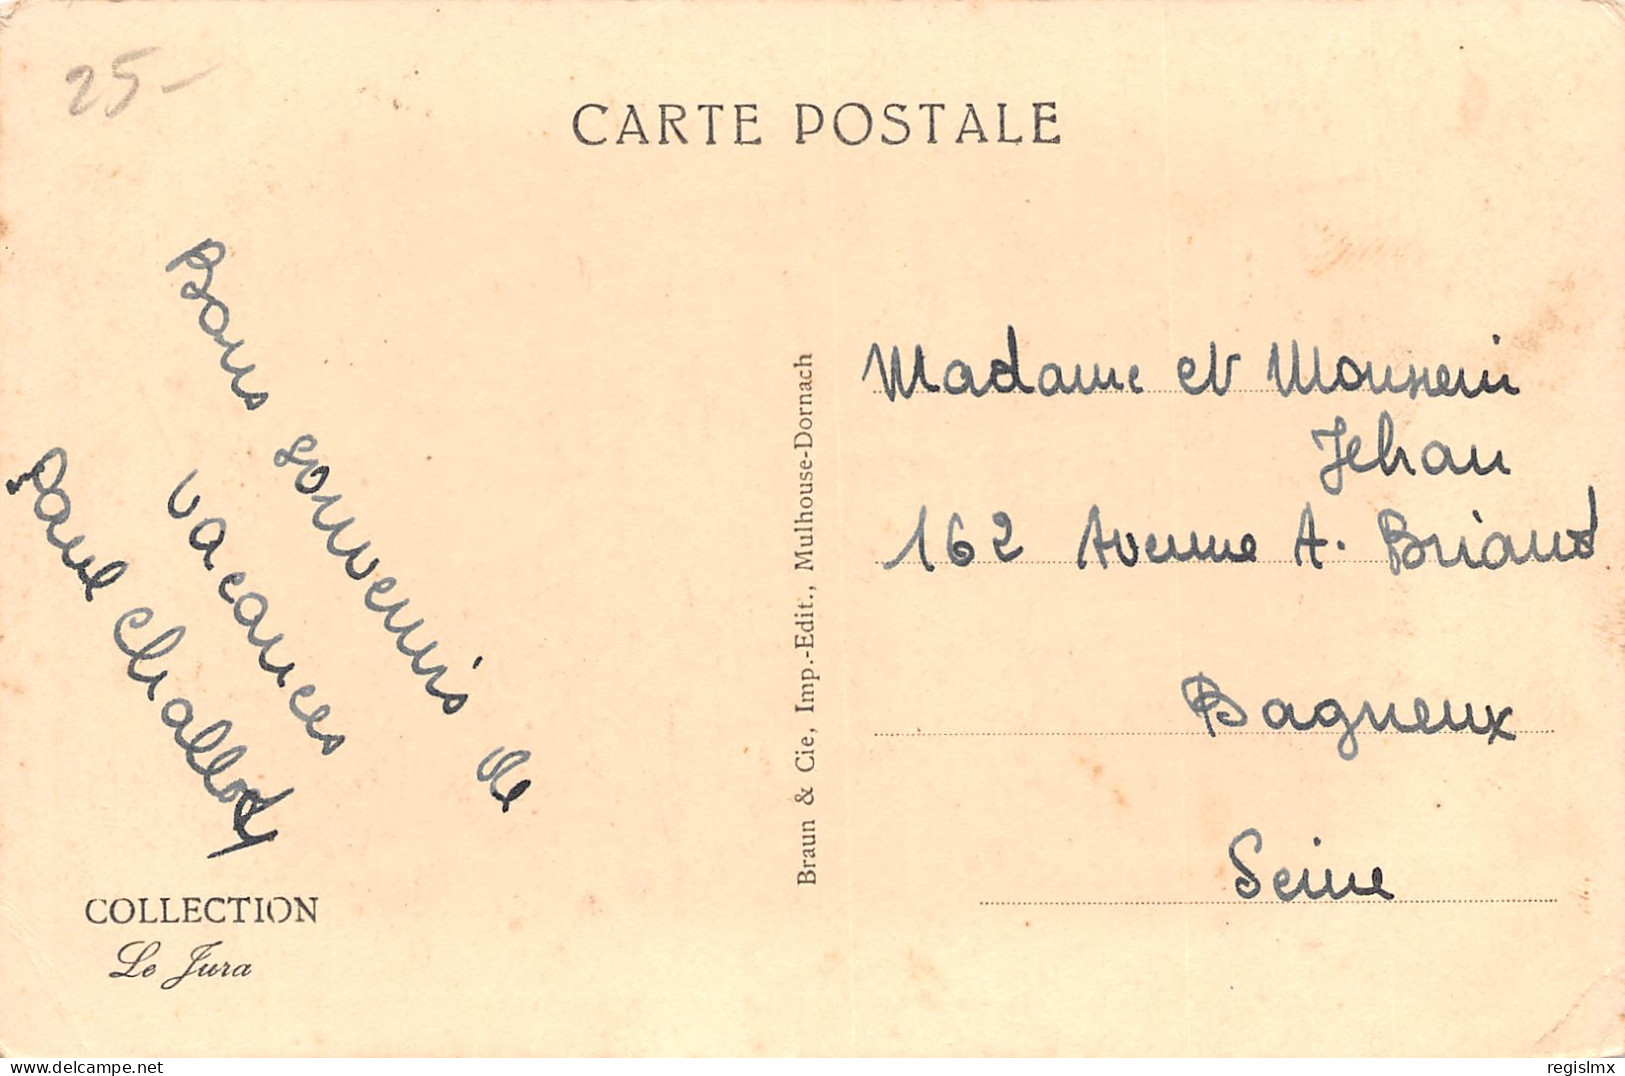 25-
CARTE POSTALE
Bons souvenirs de
vacances
Paul Challoy
COLLECTION
Le Jura
Braun & Cie, Imp.-Edit., Mulhouse-Dornach
Madame et Monsieur
Jehan
162 Avenue A. Briand
Bagneux
Seine
delcampe.net
regislmx